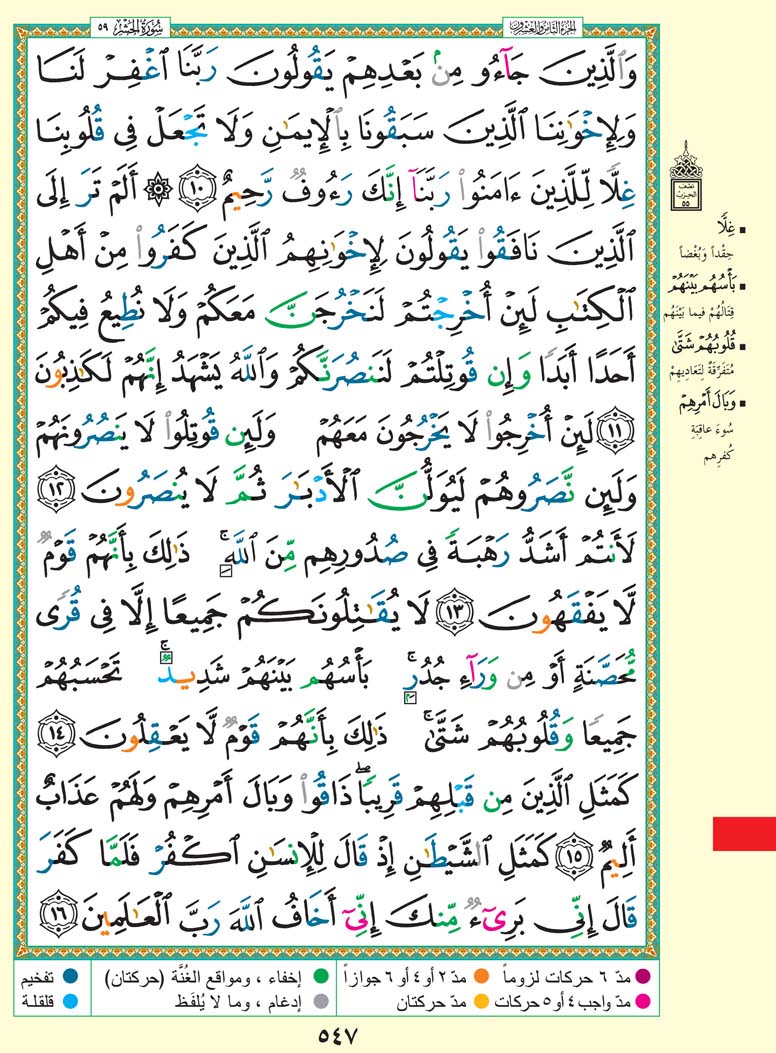 سُورَةُ الحَشْرِ ٥٩
الجزء الثامن والعشرون
وَالَّذِينَ جَآءُو مِنۢ بَعْدِهِمْ يَقُولُونَ رَبَّنَا ٱغْفِرْ لَنَا
وَلِإِخْوَٰنِنَا ٱلَّذِينَ سَبَقُونَا بِٱلْإِيمَٰنِ وَلَا تَجْعَلْ فِى قُلُوبِنَا
غِلًّا لِّلَّذِينَ ءَامَنُوا۟ رَبَّنَآ إِنَّكَ رَءُوفٌ رَّحِيمٌ ١٠ ۞ أَلَمْ تَرَ إِلَى
ٱلَّذِينَ نَافَقُوا۟ يَقُولُونَ لِإِخْوَٰنِهِمُ ٱلَّذِينَ كَفَرُوا۟ مِنْ أَهْلِ
ٱلْكِتَٰبِ لَئِنْ أُخْرِجْتُمْ لَنَخْرُجَنَّ مَعَكُمْ وَلَا نُطِيعُ فِيكُمْ
أَحَدًا أَبَدًا وَإِن قُوتِلْتُمْ لَنَنصُرَنَّكُمْ وَٱللَّهُ يَشْهَدُ إِنَّهُمْ لَكَٰذِبُونَ
١١ لَئِنْ أُخْرِجُوا۟ لَا يَخْرُجُونَ مَعَهُمْ وَلَئِن قُوتِلُوا۟ لَا يَنصُرُونَهُمْ
وَلَئِن نَّصَرُوهُمْ لَيُوَلُّنَّ ٱلْأَدْبَٰرَ ثُمَّ لَا يُنصَرُونَ ١٢
لَأَنتُمْ أَشَدُّ رَهْبَةً فِى صُدُورِهِم مِّنَ ٱللَّهِ ۚ ذَٰلِكَ بِأَنَّهُمْ قَوْمٌ
لَّا يَفْقَهُونَ ١٣ لَا يُقَٰتِلُونَكُمْ جَمِيعًا إِلَّا فِى قُرًى
مُّحَصَّنَةٍ أَوْ مِن وَرَآءِ جُدُرٍۭ ۚ بَأْسُهُم بَيْنَهُمْ شَدِيدٌ ۚ تَحْسَبُهُمْ
جَمِيعًا وَقُلُوبُهُمْ شَتَّىٰ ۚ ذَٰلِكَ بِأَنَّهُمْ قَوْمٌ لَّا يَعْقِلُونَ ١٤
كَمَثَلِ ٱلَّذِينَ مِن قَبْلِهِمْ قَرِيبًا ۖ ذَاقُوا۟ وَبَالَ أَمْرِهِمْ وَلَهُمْ عَذَابٌ
أَلِيمٌ ١٥ كَمَثَلِ ٱلشَّيْطَٰنِ إِذْ قَالَ لِلْإِنسَٰنِ ٱكْفُرْ فَلَمَّا كَفَرَ
قَالَ إِنِّى بَرِىٓءٌ مِّنكَ إِنِّىٓ أَخَافُ ٱللَّهَ رَبَّ ٱلْعَٰلَمِينَ ١٦
نصف
الحزب
٥٥
▪ غِلًّا
حِقْداً وَبُغْضاً
▪ بَأْسُهُم بَيْنَهُمْ
قِتَالُهُمْ فيما بَيْنَهُم
▪ قُلُوبُهُمْ شَتَّىٰ
مُتَفَرِّقَةٌ لِتَعَادِيهِمْ
▪ وَبَالَ أَمْرِهِمْ
سُوءَ عاقِبَةِ
كُفرِهِم
مدّ ٦ حركات لزوماً
مدّ ٢ أو ٤ أو ٦ جوازاً
إخفاء ، ومواقع الغُنَّة (حركتان)
تفخيم
مدّ واجب ٤ أو ٥ حركات
مدّ حركتان
إدغام ، وما لا يُلفَظ
قلقلة
٥٤٧